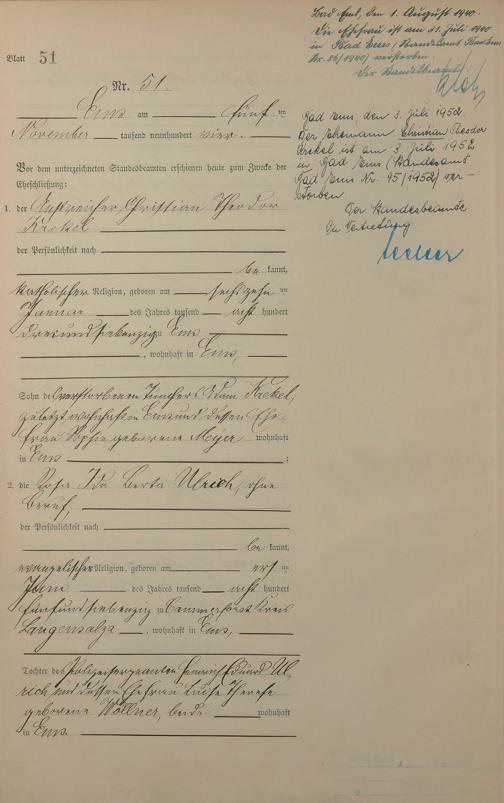 Blatt 51
Nr. 51.
Ems am fünf ten
November tausend neunhundert vier.
Vor dem unterzeichneten Standesbeamten erschienen heute zum Zwecke der
Eheschließung:
1. der Christian Theodor
Krekel
der Persönlichkeit nach
be kannt,
katholischer Religion, geboren am sechszehn ten
Januar des Jahres tausend acht hundert
dreiundsiebenzig zu Ems
, wohnhaft in Ems,
Sohn des verstorbenen Tünchers Krekel,
zuletzt wohnhaft in Ems und dessen Ehe-
frau Sophie geborene Meyer wohnhaft
in Ems ;
2. die Rosa Ida Berta Ulrich, ohne
Beruf,
der Persönlichkeit nach
be kannt,
evangelischer Religion, geboren am ers ten
des Jahres tausend acht hundert
fünfundsiebenzig zu Kreis
Langensalza , wohnhaft in Ems,
Tochter des Polizeisergeanten Heinrich Eduard Ul-
rich und dessen Ehefrau Luise Therese
geborene Wöllner, beide wohnhaft
in Ems
Bad Ems, den 1. August 1940.
Die Ehefrau ist am 31. Juli 1940
in Bad Ems (Standesamt Bad Ems
Nr. /1940) verstorben.
Der Standesbeamte:
Bad Ems, den 3. Juli 1952.
Der Ehemann Christian Theodor
Krekel ist am 3. Juli 1952
in Bad Ems (Standesamt
Bad Ems Nr. 95/1952) ver-
storben
Der Standesbeamte
In Vertretung